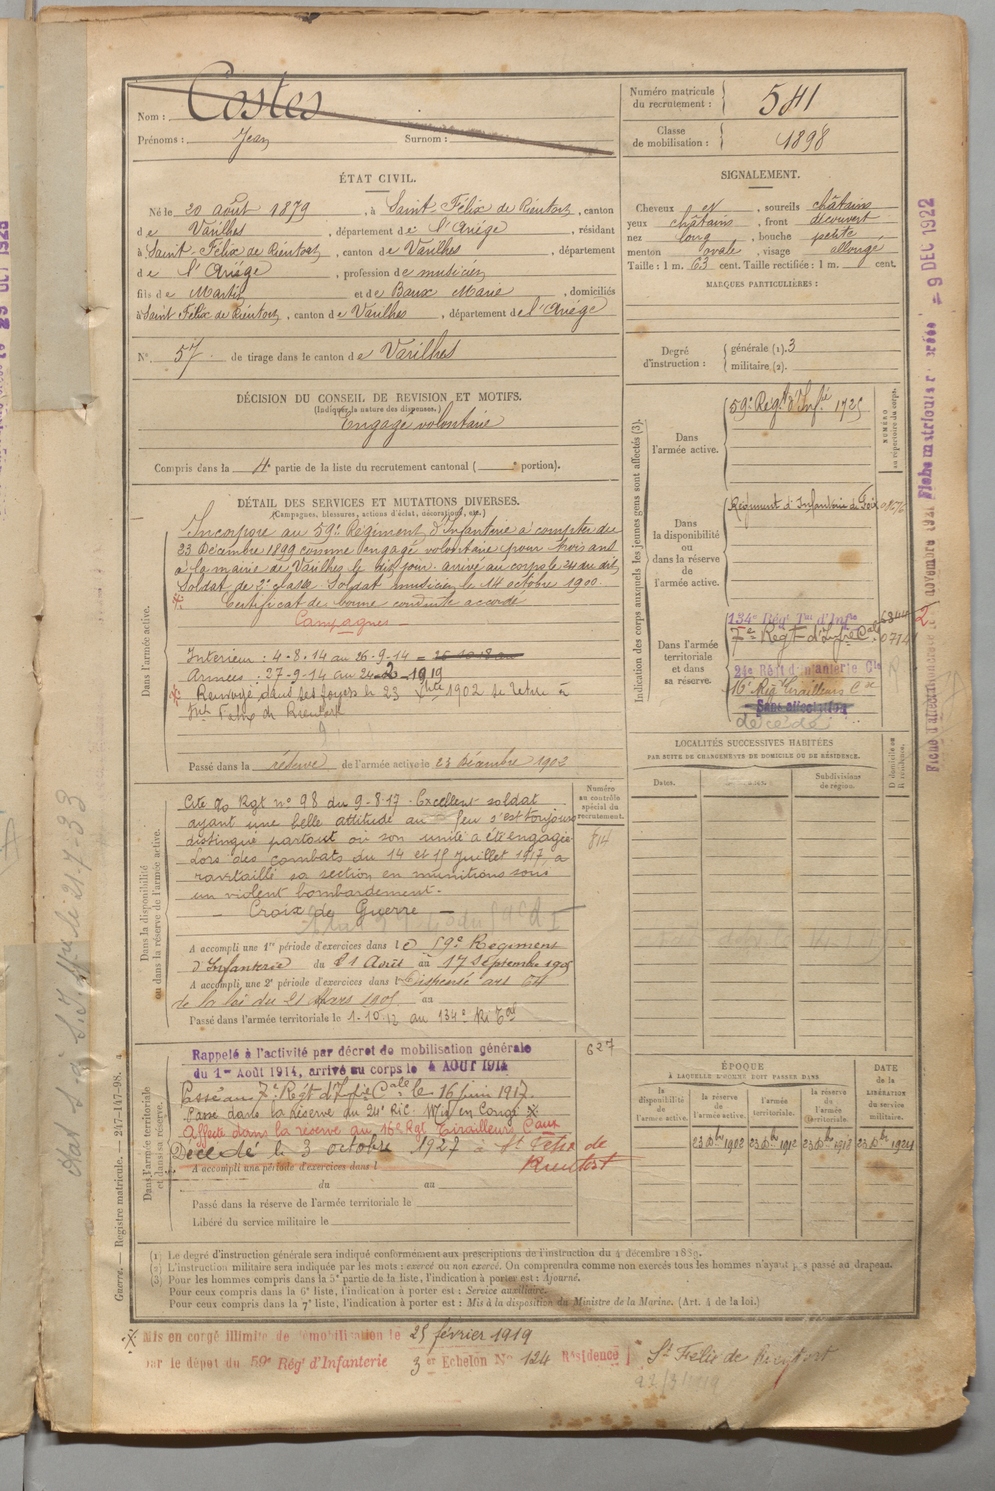 Nom : Costes
Prénoms : Jean Surnom :
Numéro matricule
du recrutement : 541
Classe
de mobilisation : 1898
ÉTAT CIVIL.
Né le 20 août 1879, à Saint Félix de Rieutort, canton
de Varilhes, département de l'Ariége, résidant
à Saint-Félix de Rieutort, canton de Varilhes, département
de l'Ariége, profession de musicien
fils de Martin et de Baux Marie, domiciliés
à Saint Félix de Rieutort, canton de Varilhes, département de l'Ariége
N° 57 de tirage dans le canton de Varilhes
SIGNALEMENT.
Cheveux et, sourcils châtains
yeux châtains, front découvert
nez long, bouche petite
menton ovale, visage allongé
Taille : 1 m. 63 cent. Taille rectifiée : 1 m. cent.
MARQUES PARTICULIÈRES :
Degré
d'instruction :
générale (1). 3
militaire (2).
DÉCISION DU CONSEIL DE REVISION ET MOTIFS.
(Indiquer la nature des dispenses.)
Engagé volontaire
Compris dans la 4e partie de la liste du recrutement cantonal ( portion).
DÉTAIL DES SERVICES ET MUTATIONS DIVERSES.
(Campagnes, blessures, actions d'éclat, décorations, etc.)
Dans l'armée active.
Incorporé au 59e Régiment d'Infanterie à compter du
23 Décembre 1899 comme engagé volontaire pour trois ans
à la mairie de Varilhes le dit jour arrivé au corps le 24 du dit
Soldat de 2e classe Soldat musicien le 14 octobre 1900.
Certificat de bonne conduite accordé
Campagnes
Intérieur : 4-8-14 au 26-9-14
Armées : 27-9-14 au 24-2-1919
Renvoyé dans ses foyers le 23 Xbre 1902 se retire à
St Felix de Rieutort
Passé dans la réserve de l'armée active le 23 Décembre 1902
Indication des corps auxquels les jeunes gens sont affectés (3).
NUMÉRO
au répertoire du corps.
Dans
l'armée active.
59e Régt d'Infie 1725
Dans
la disponibilité
ou
dans la réserve
de
l'armée active.
Régiment d'Infanterie de Foix 01076
Dans l'armée
territoriale
et dans
sa réserve.
134e Régt Ter d'Infie 6844
7e Regt d'Infie Cale
24e Régt d'Infanterie Cle
16e Rég Tirailleurs
Sans affectation
décédé
LOCALITÉS SUCCESSIVES HABITÉES
PAR SUITE DE CHANGEMENTS DE DOMICILE OU DE RÉSIDENCE.
Dates.
Subdivisions
de région.
D domicile ou
R résidence.
Dans la disponibilité
ou dans la réserve de l'armée active.
Numéro
au contrôle
spécial du
recrutement.
814
Cité O/ Rgt n° 98 du 9-8-17 Excellent soldat
ayant une belle attitude au feu s'est toujours
distingué partout où son unité a été engagée
Lors des combats du 14 et 15 Juillet 1917, a
ravitaillé sa section en munitions sous
un violent bombardement.
Croix de Guerre
A accompli une 1re période d'exercices dans le 59e Régiment
d'Infanterie du 21 Août au 17 Septembre 1905
A accompli une 2e période d'exercices dans l Dispensé art
de la loi du 21 Mars 1905 au
Passé dans l'armée territoriale le 1-10-12 au 134e Ri Tal
Dans l'armée territoriale
et dans sa réserve.
627
Rappelé à l'activité par décret de mobilisation générale
du 1er Août 1914, arrivé au corps le 4 AOUT 1914
Passé au 7e Régt d'Infie Cale le 16 juin 1917.
Passé dans la Réserve du 24e RIC. Mis en Congé
Affecté dans la réserve au 16e Rgt Tirailleurs Caux
Décédé le 3 octobre 1927 à St Félix de
Rieutort
A accompli une période d'exercices dans l
du au
Passé dans la réserve de l'armée territoriale le
Libéré du service militaire le
ÉPOQUE
À LAQUELLE L'HOMME DOIT PASSER DANS
DATE
de la
LIBÉRATION
du service
militaire.
la
disponibilité
de
l'armée active.
la réserve
de
l'armée active.
l'armée
territoriale.
la réserve
de
l'armée
territoriale.
23 Xbre 1902 23 Xbre 1912 23 Xbre 1918 23 Xbre 1924
(1) Le degré d'instruction générale sera indiqué conformément aux prescriptions de l'instruction du 4 décembre 1889.
(2) L'instruction militaire sera indiquée par les mots : exercé ou non exercé. On comprendra comme non exercés tous les hommes n'ayant pas passé au drapeau.
(3) Pour les hommes compris dans la 5e partie de la liste, l'indication à porter est : Ajourné.
Pour ceux compris dans la 6e liste, l'indication à porter est : Service auxiliaire.
Pour ceux compris dans la 7e liste, l'indication à porter est : Mis à la disposition du Ministre de la Marine. (Art. 4 de la loi.)
Mis en congé illimité de démobilisation le 25 février 1919
par le dépôt du 59e Régt d'Infanterie 3e Echelon N° 124 Résidence St Félix de Rieutort
22/3/1919
Guerre. — Registre matricule. — 247-147-98.
9 DEC 1922